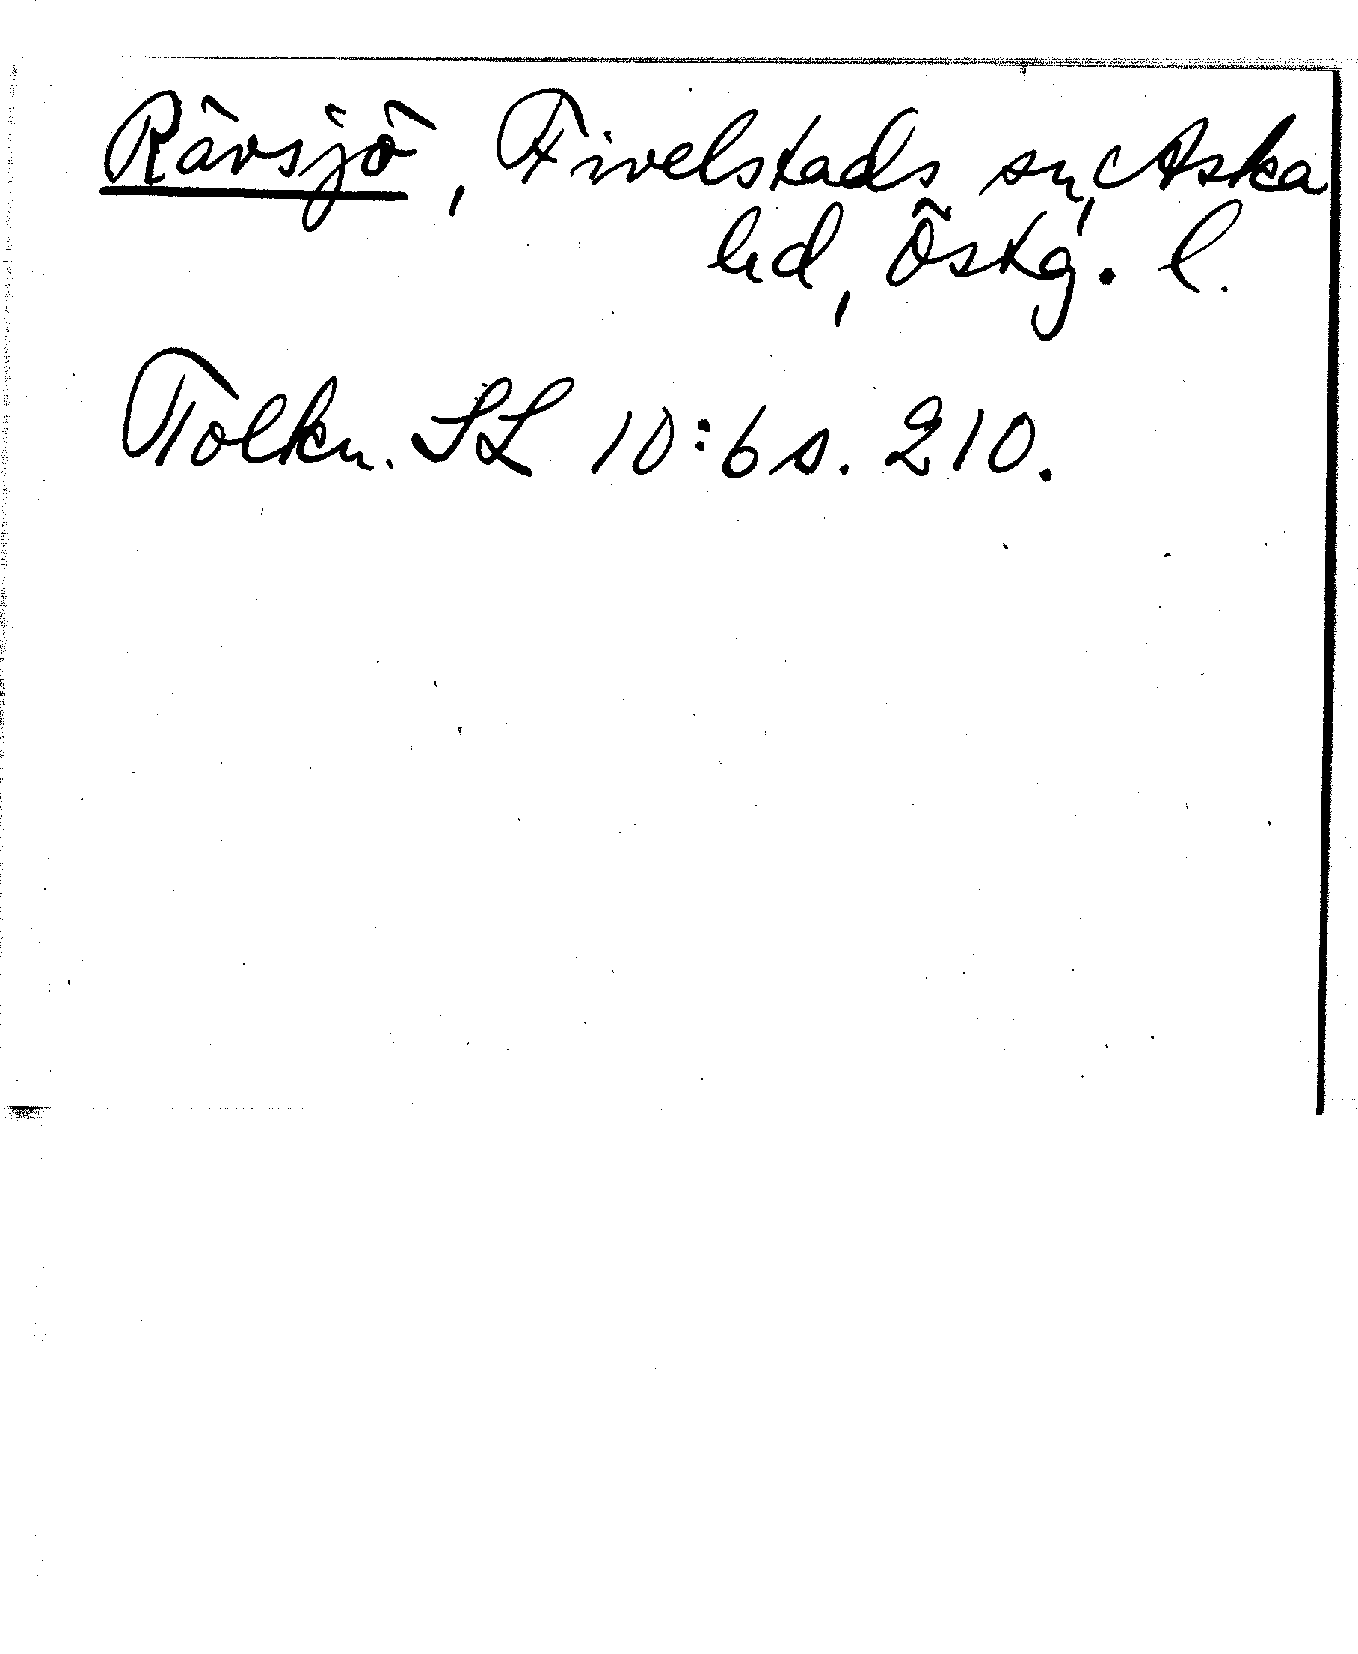 Rävsjö, Fivelstads sn, Aska
hd, Östg. l.
Tolkn. SL 10:6 s. 210.